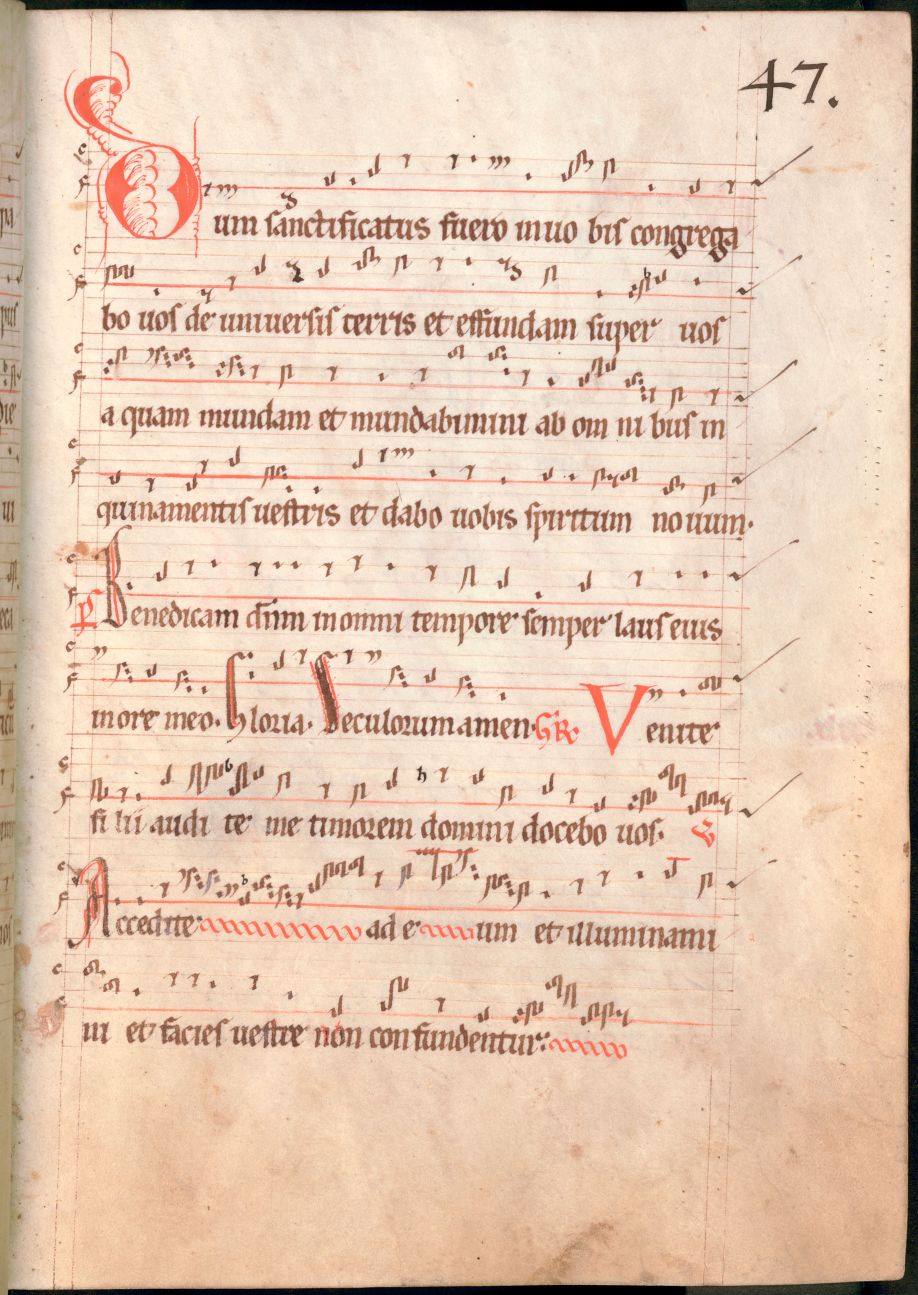 47.
Dum sanctificatus fuero in uo bis congrega
bo uos de uniuersis terris et effundam super uos
a quam mundam et mundabimini ab om ni bus in
quinamentis uestris et dabo uobis spiritum no uum.
Ps Benedicam dn̄m in omni tempore semper laus eius
in ore meo. Gloria. Seculorum amen. GR. Venite
fi lii audi te me timorem domini docebo uos. V
Accedite ad e um et illuminami
ni et facies uestre non con fundentur.